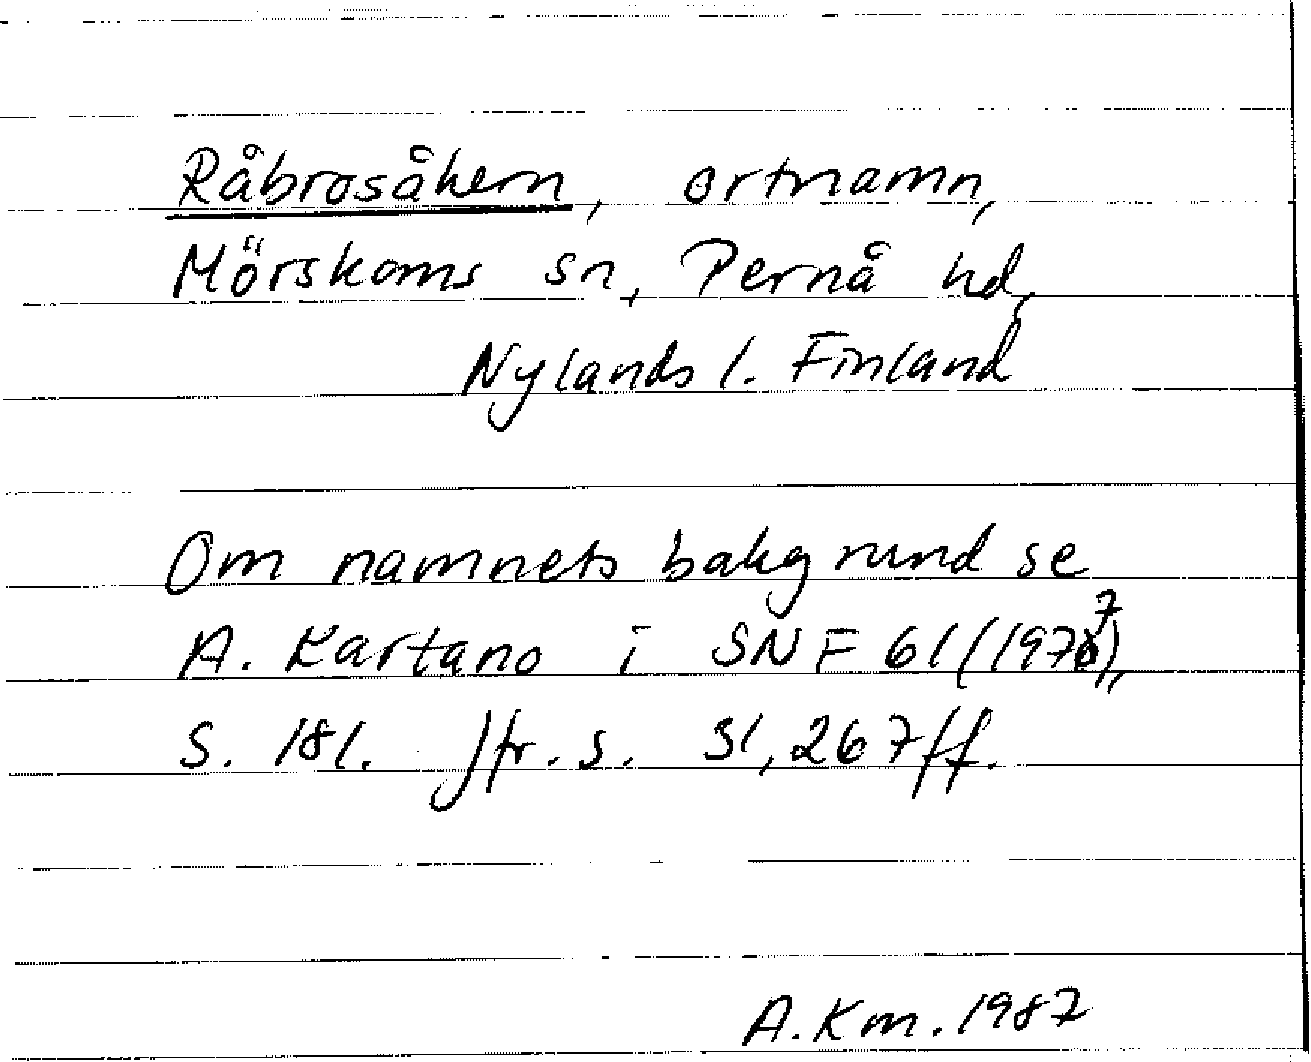 Råbrosåkern, ortnamn,
Mörskoms sn, Pernå hd,
Nylands l. Finland
Om namnets bakgrund se
A. Kartano i SNF 61 (1977),
s. 181. Jfr. s. 31, 267 ff.
A. Km. 1987